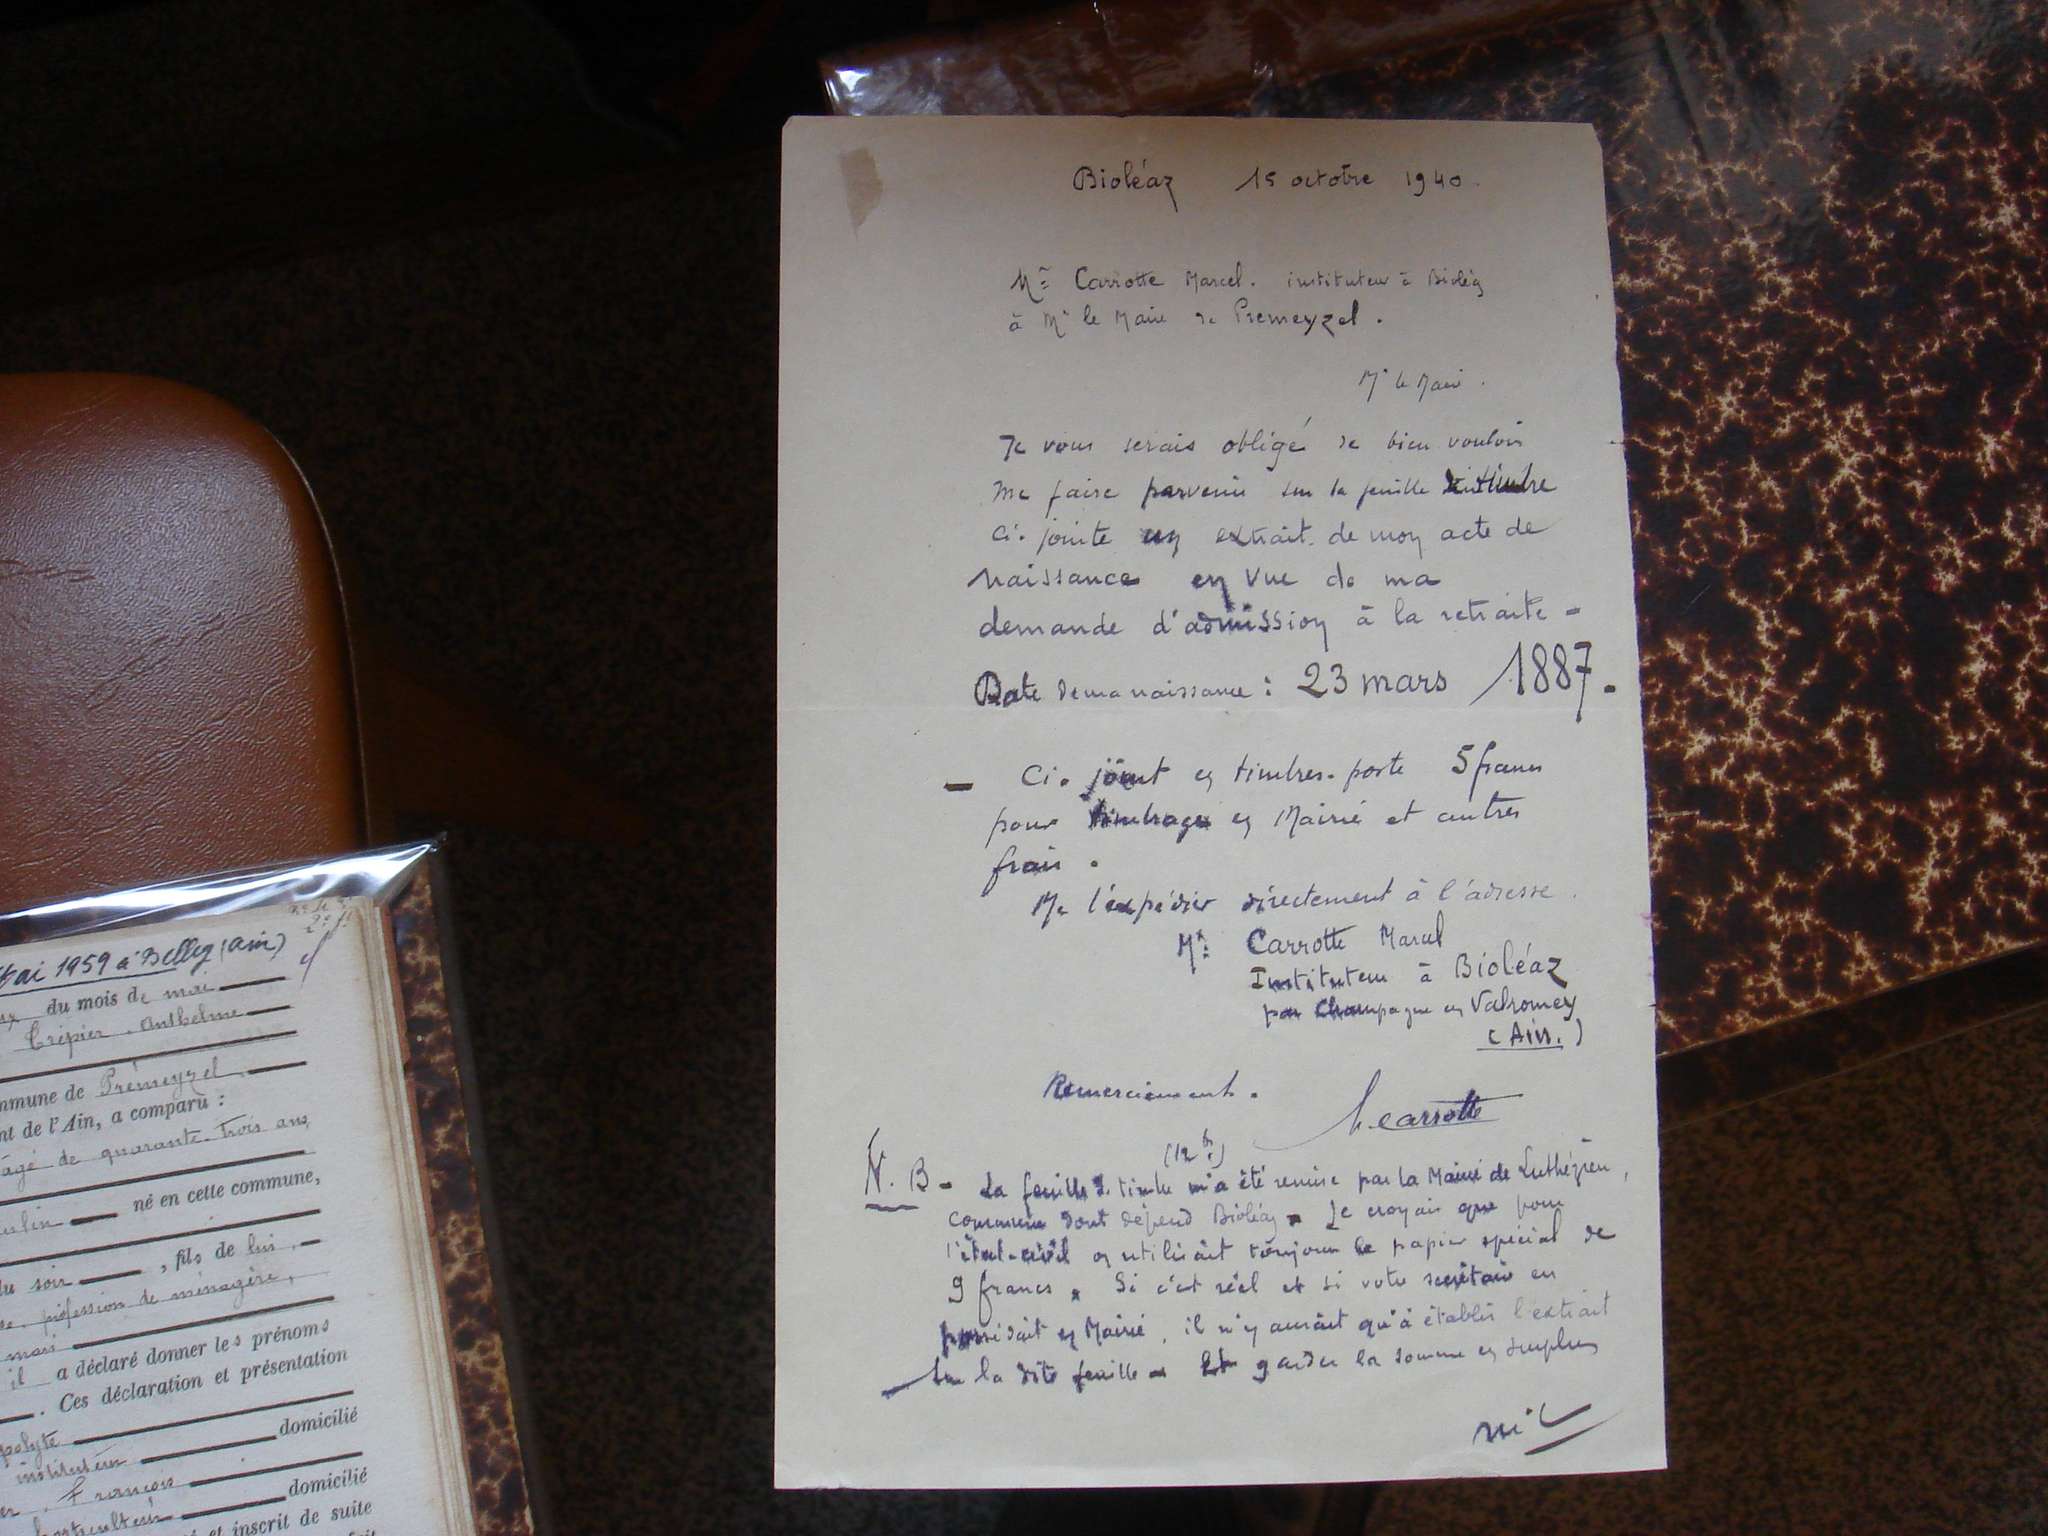 Bioléaz 15 octobre 1940.
Mr Carrotte Marcel. instituteur à Bioléaz
à Mr le Maire de Premeyzel.
Mr le Maire.
Je vous serais obligé de bien vouloir
me faire parvenir sur la feuille de timbre
ci. jointe un extrait de mon acte de
naissance en vue de ma
demande d'admission à la retraite -
Date de ma naissance : 23 mars 1887.
- Ci. joint en timbres. poste 5 francs
pour timbrage en Mairie et autres
frais.
Me l'expédier directement à l'adresse.
Mr : Carrotte Marcel
Instituteur à Bioléaz
par Champagne en Valromey
(Ain.)
Remerciements.
M. Carrotte
(12 fr)
N. B - La feuille de timbre m'a été remise par la Mairie de Luthézieu,
commune dont dépend Bioléaz. Je croyais que pour
l'état-civil on utilisait toujours le papier spécial de
9 francs. Si c'est réel et si votre secrétaire en
possédait en Mairie, il n'y aurait qu'à établir l'extrait
sur la dite feuille - et garder la somme en surplus
Mai 1959 à Belley (Ain)
du mois de mai
Crépier. Anthelme
commune de Prémeyzel
nt de l'Ain, a comparu :
âgé de quarante-trois ans
né en cette commune,
du soir , fils de lui,
profession de ménagère,
mais
il a déclaré donner les prénoms
. Ces déclaration et présentation
polyte domicilié
instituteur
François
domicilié
et inscrit de suite